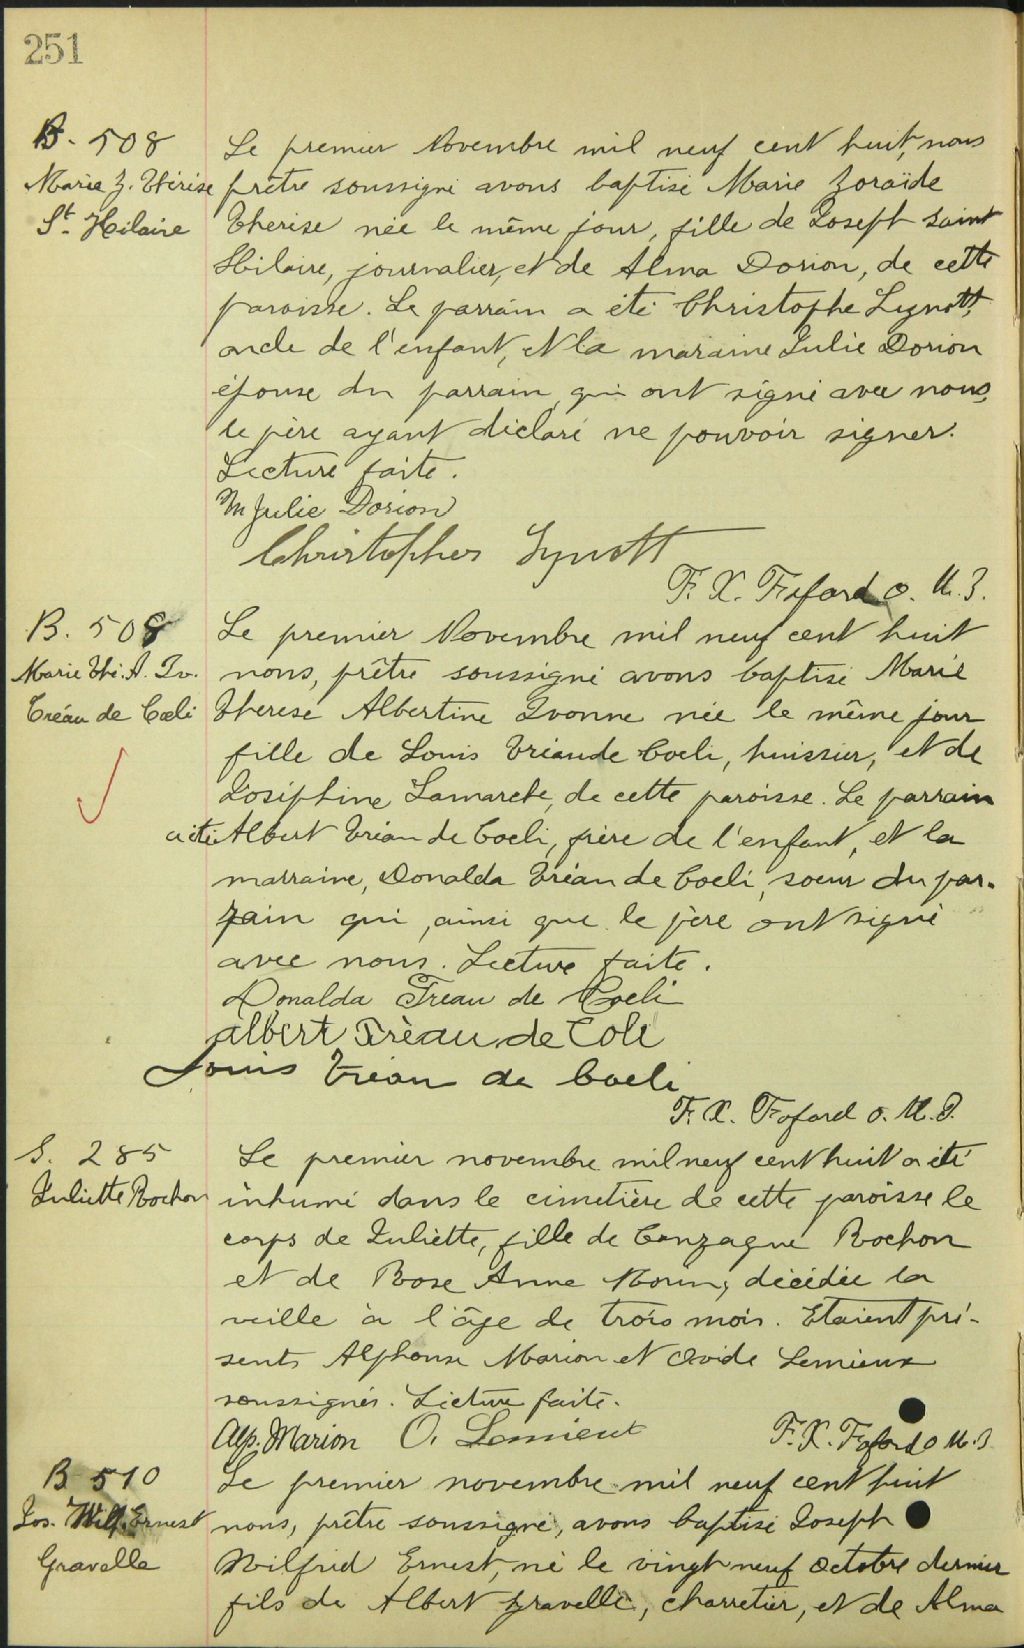 251
B. 508
Marie Z. Thérèse
St. Hilaire
Le premier Novembre mil neuf cent huit, nous
prêtre soussigné avons baptisé Marie Zoraïde
Therèse née le même jour, fille de Joseph Saint
Hilaire, journalier, et de Alma Dorion, de cette
paroisse. Le parrain a été Christophe Lynott,
oncle de l'enfant, et la maraine Julie Dorion
épouse du parrain, qui ont signé avec nous,
le père ayant déclaré ne pouvoir signer.
Lecture faite.
M Julie Dorion
Christopher Lynott
F. X. Fafard o. M. I.
B. 509
Marie Thé. A. Iv.
Tréau de Cœli
Le premier Novembre mil neuf cent huit
nous, prêtre soussigné avons baptisé Marie
Therese Albertine Yvonne née le même jour
fille de Louis Tréau de Coeli, huissier, et de
Joséphine Lamarche, de cette paroisse. Le parrain
a été Albert Tréau de Coeli, frère de l'enfant, et la
marraine, Donalda Tréau de Coeli, soeur du par-
rain qui, ainsi que le père ont signé
avec nous. Lecture faite.
Donalda Treau de Coeli
albert Trèau de Coli
Louis Tréau de Coeli
F. X. Fafard o. M. I.
S. 285
Juliette Rochon
Le premier novembre mil neuf cent huit a été
inhumé dans le cimetière de cette paroisse le
corps de Juliette, fille de Gonzague Rochon
et de Rose Anne Morin, décédée la
veille à l'âge de trois mois. Etaient pré-
sents Alphonse Marion et Ovide Lemieux
soussignés. Lecture faite.
Alp. Marion O. Lemieux F. X. Fafard o M. I
B 510
Jos. Wilf. Ernest
Gravelle
Le premier novembre mil neuf cent huit
nous, prêtre soussigné, avons baptisé Joseph
Wilfrid Ernest, né le vingt neuf octobre dernier
fils de Albert Gravelle, charretier, et de Alma